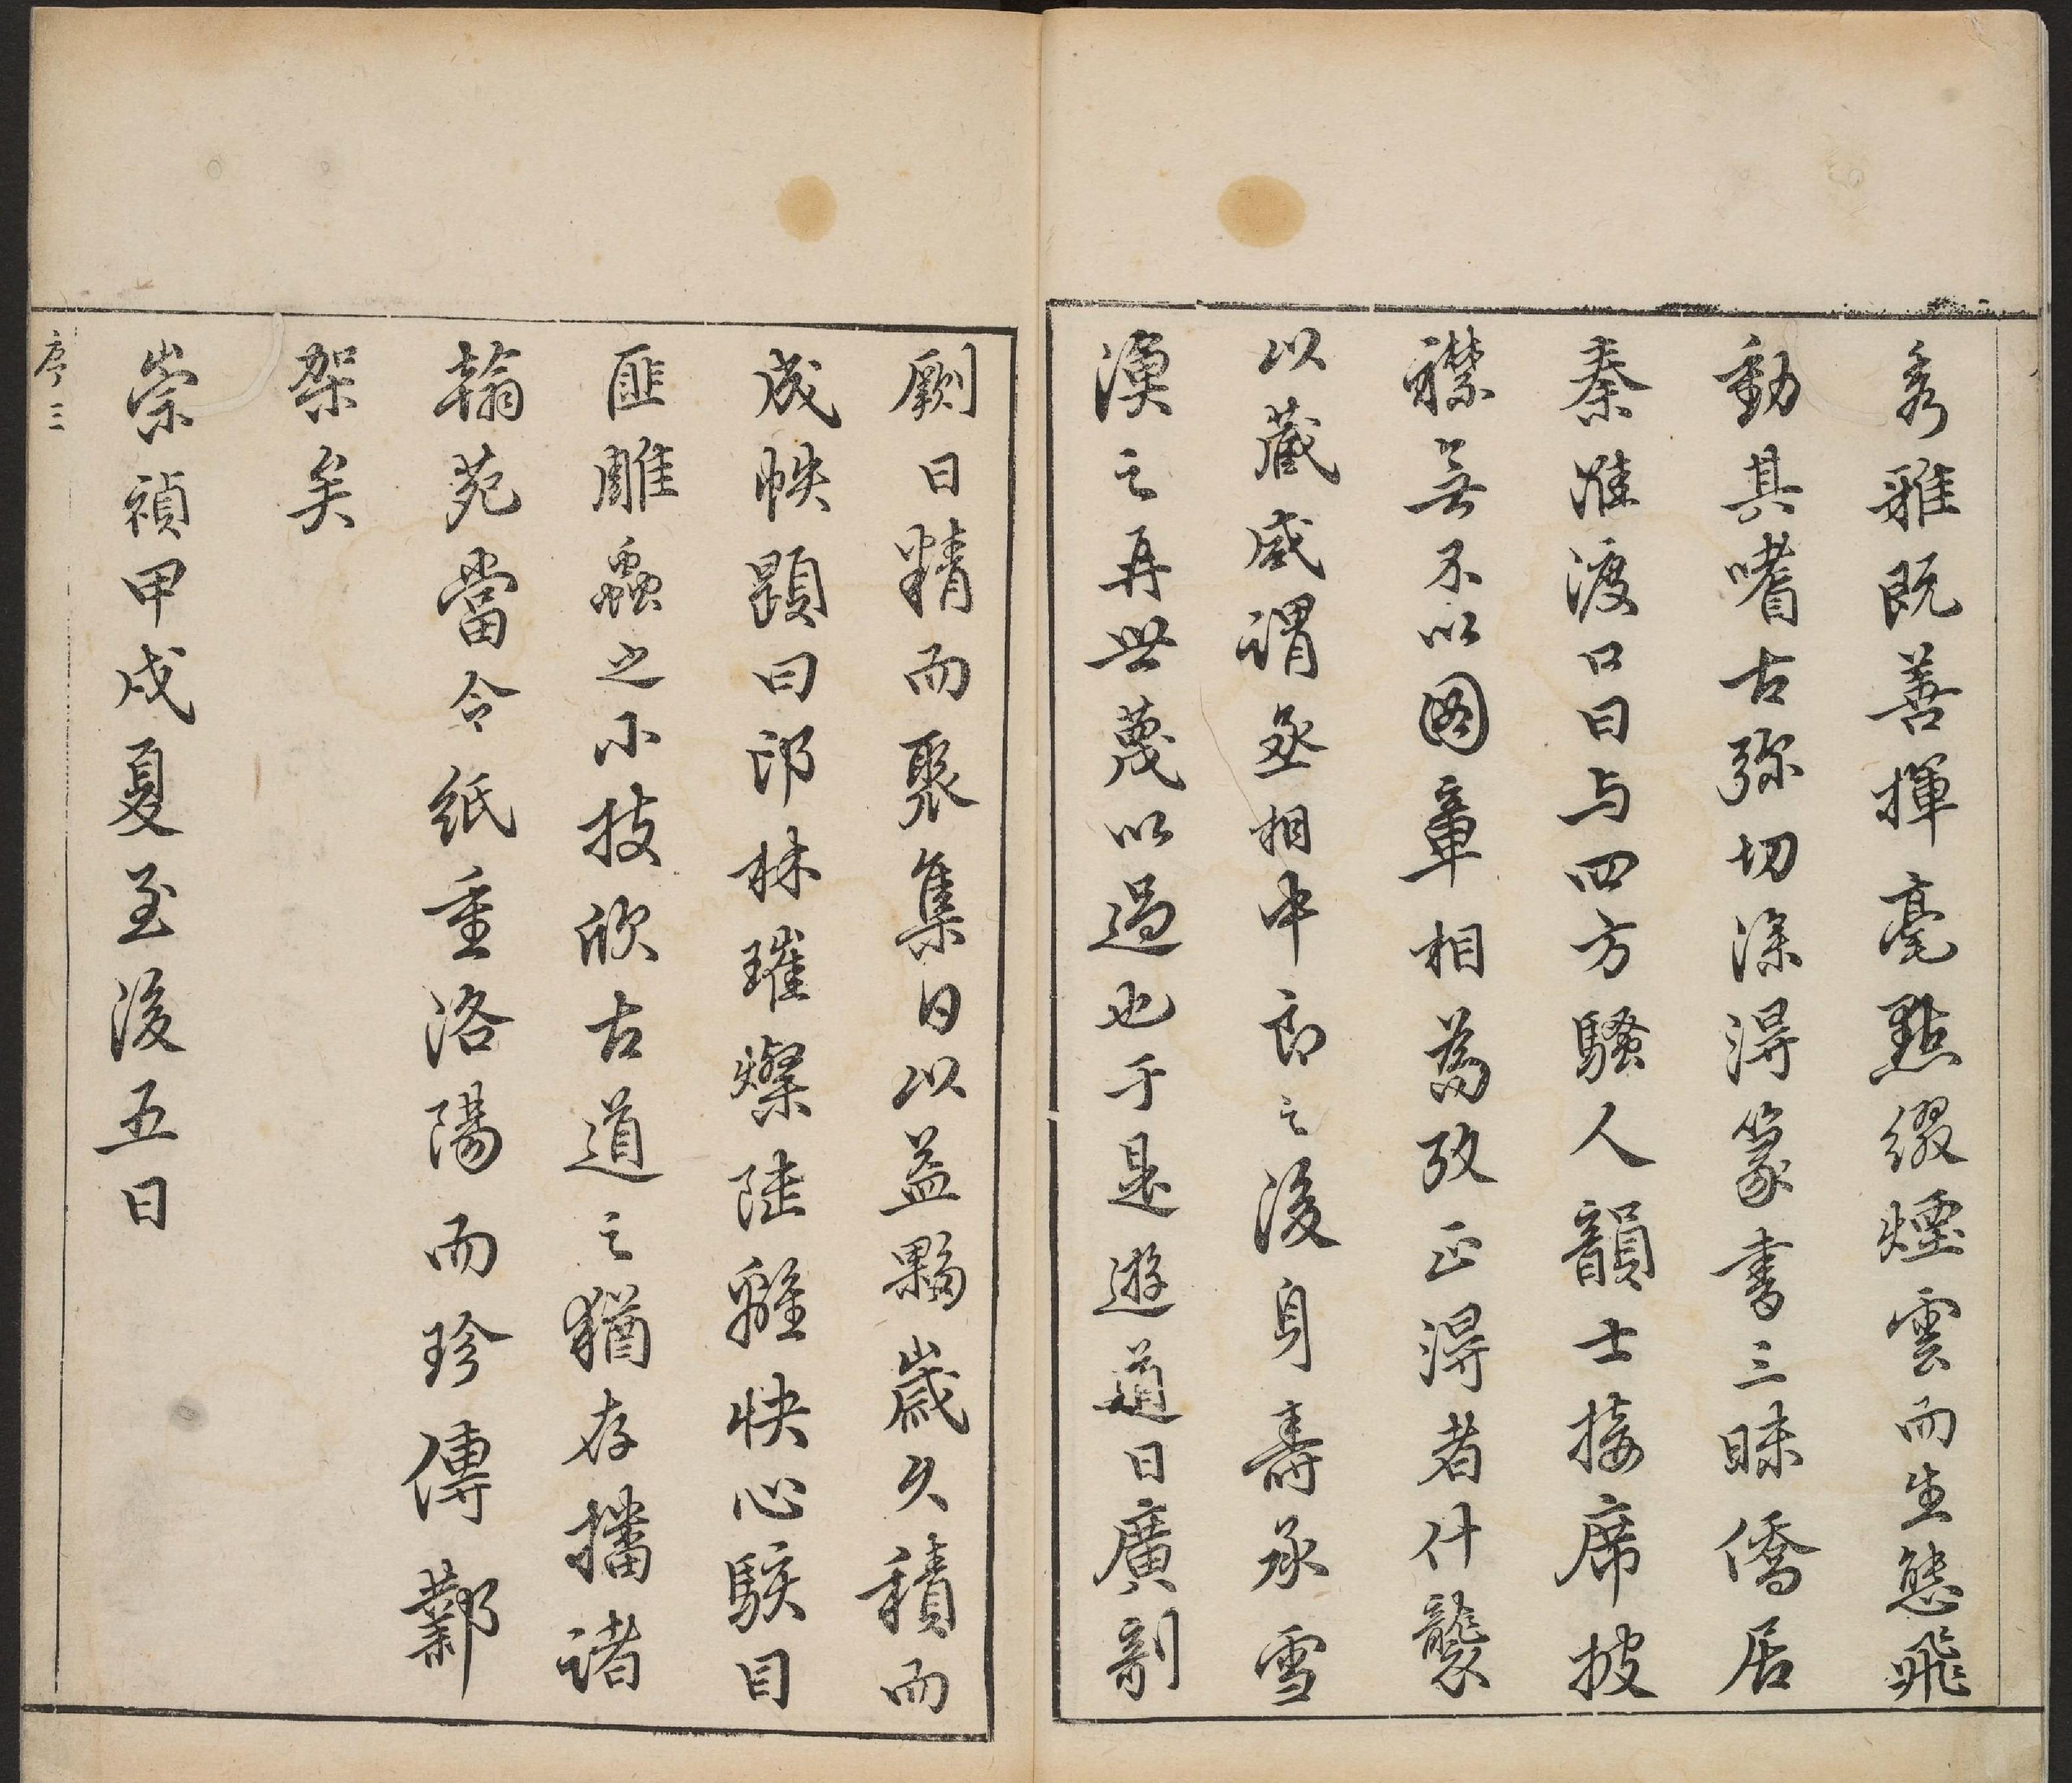 秀雅既善揮毫點綴煙雲而生態飛
動其嗜古弥切深得篆書三昧僑居
秦淮渡口日与四方騷人韻士接席披
襟無不以图章相為攷正得者什襲
以藏咸謂丞相中郎之後身壽承雪
漁之再世蔑以過也于是遊道日廣剞
劂日精而聚集日以益夥歲久積而
成帙顕曰印林璀燦陸離快心駭目
匪雕蟲之小技欣古道之猶存播諸
翰苑當令紙重洛陽而珍傳鄴
架矣
崇禎甲戌夏至後五日
序三